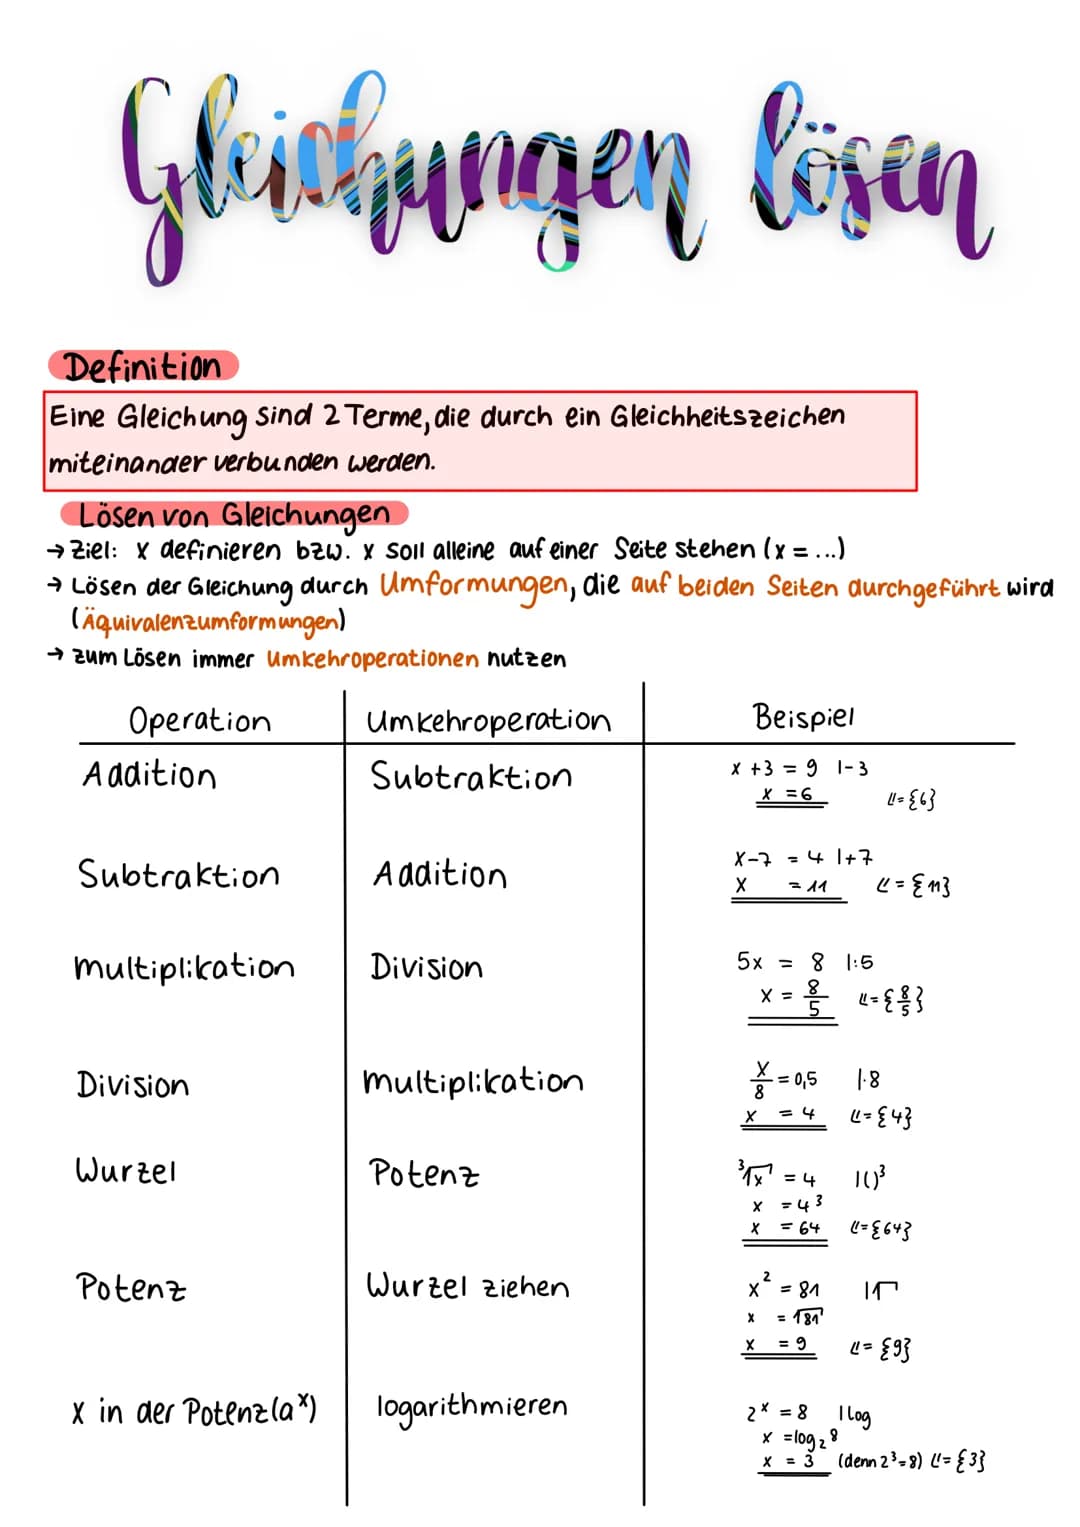 Gleichungen lösen
Definition
Eine Gleichung sind 2 Terme, die durch ein Gleichheitszeichen
miteinander verbunden werden.
Lösen von Gleichungen
→ Ziel: x definieren bzw. x soll alleine auf einer Seite stehen (x = ...)
→ Lösen der Gleichung durch Umformungen, die auf beiden Seiten durchgeführt wird
(Äquivalenzumformungen)
→ zum Lösen immer Umkehroperationen nutzen
Operation Umkehroperation Beispiel
Addition Subtraktion x + 3 = 9 |-3
x = 6 𝕃={6}
Subtraktion Addition x-7 = 4 |+7
x = 11 𝕃={11}
Multiplikation Division 5x = 8 |:5
x = 8/5 𝕃={8/5}
Division Multiplikation x/8 = 0,5 |·8
x = 4 𝕃={4}
Wurzel Potenz ³√x = 4 |()³
x = 4³
x = 64 𝕃={64}
Potenz Wurzel ziehen x² = 81 |√
x = √81
x = 9 𝕃={9}
x in der Potenz (aˣ) logarithmieren 2ˣ = 8 |log
x = log₂8
x = 3 (denn 2³=8) 𝕃={3}